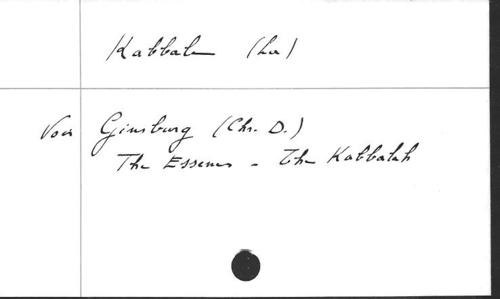 Kabbale (La)
Voir Ginsburg (Chr. D.)
The Essenes - The Kabbalah